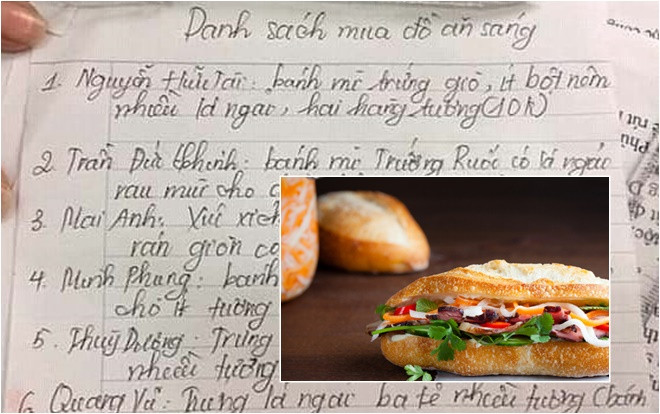 Danh sách mua đồ ăn sáng
1. Nguyễn Hữu Tài: bánh mì trứng giò, ít bột nêm
nhiều lá ngac, hai hàng tương (10k)
2. Trần Đức Thịnh: bánh mì Trướng Ruốc có lá ngác
rau mùi cho
3. Mai Anh: Xúc xích
rán giòn co
4. Minh Phung: banh
chỏ ít tương
5. Thuỳ Dương: Trưng
nhiều tương
6. Quang Vũ: Trưng lá ngac ba tê nhiều tương (bánh